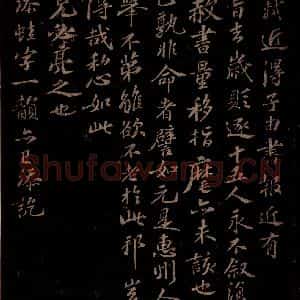 近得子由書報近有
旨去歲貶逐十五人永不叙復
赦書量移指麾亦未該也
已孰非命者譬如元是惠州人
舉不第雖欲不於此邪豈
得哉私心如此
兄必亮之也
蛙字一韻
Shufawang.CN